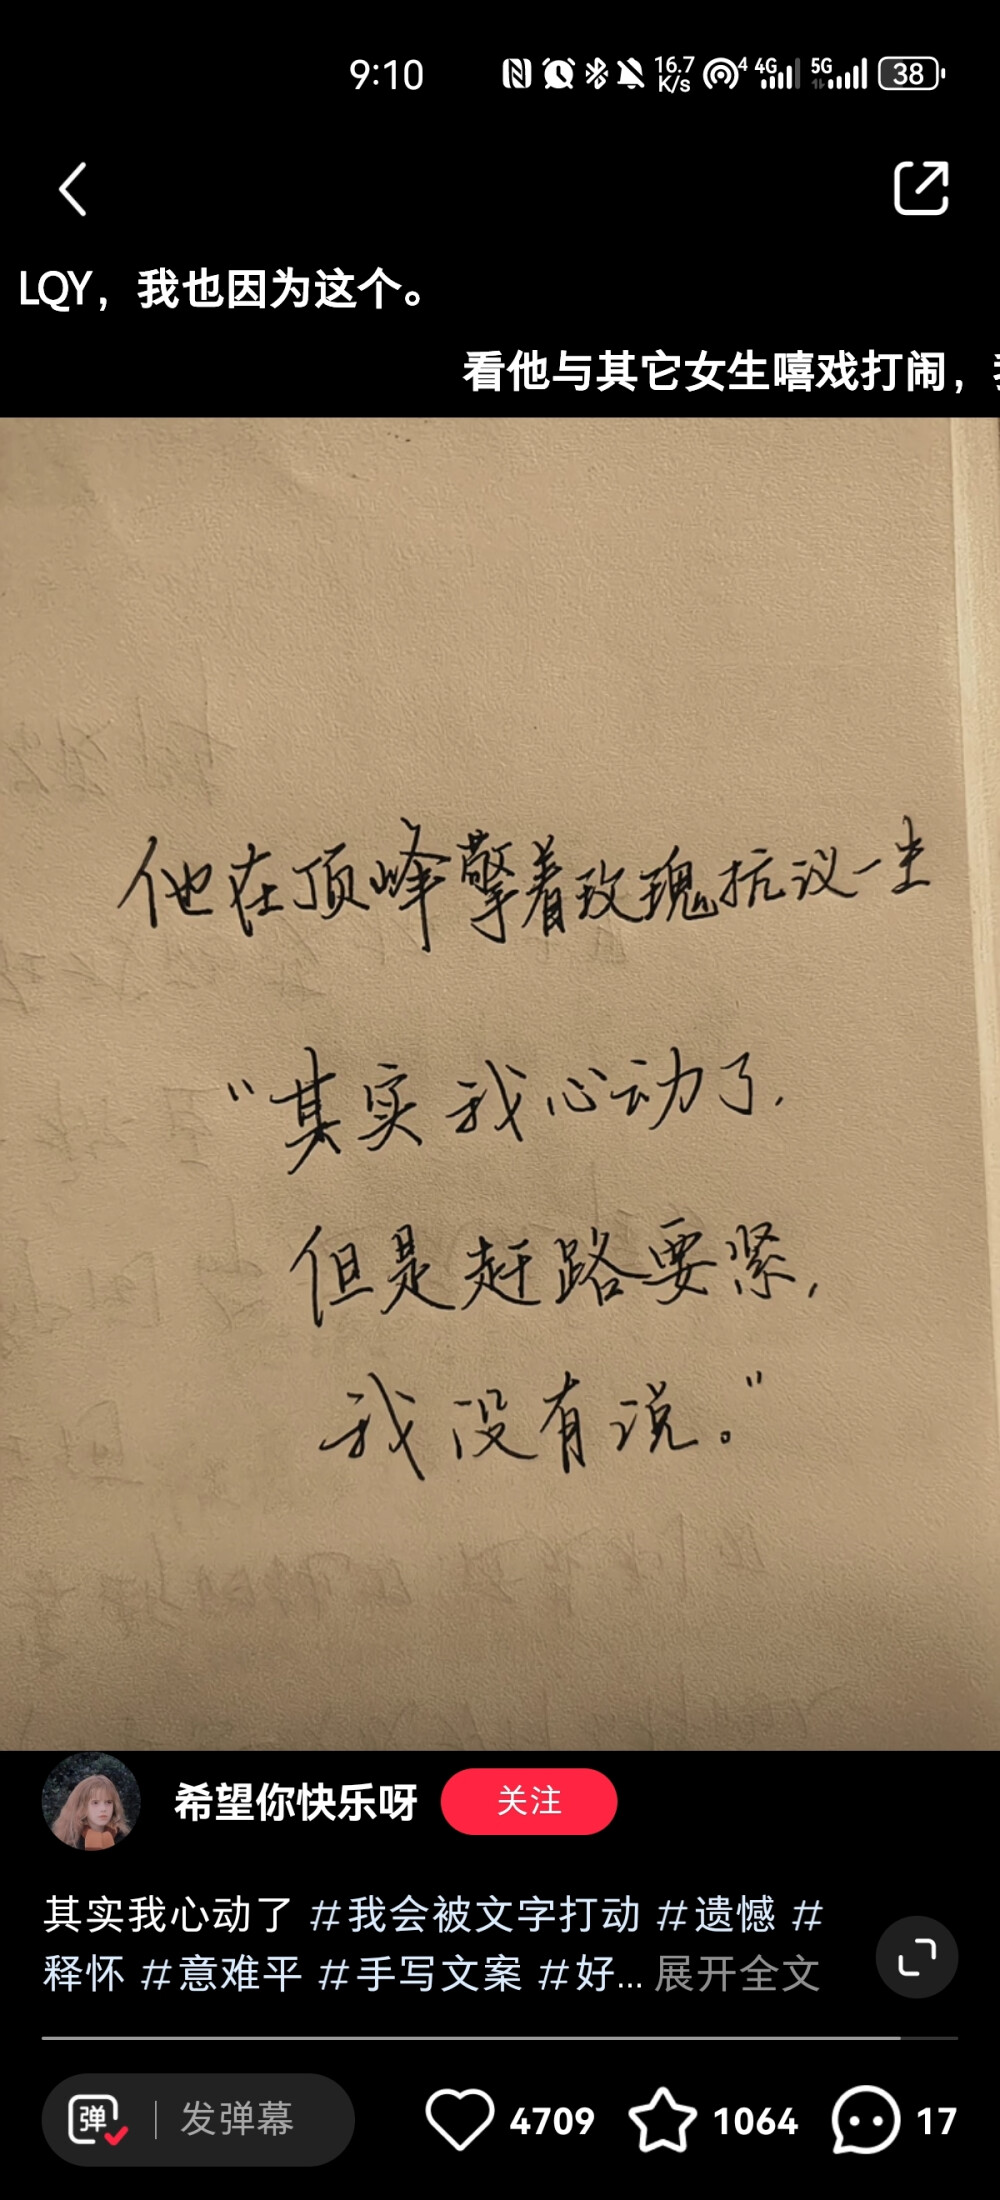 9:10 16.7 K/s 4 4G 5G 38
LQY，我也因为这个。
看他与其它女生嘻戏打闹，
他在顶峰擎着玫瑰抗议一生
“其实我心动了，
但是赶路要紧，
我没有说。”
希望你快乐呀 关注
其实我心动了 #我会被文字打动 #遗憾 #
释怀 #意难平 #手写文案 #好... 展开全文
弹 发弹幕 4709 1064 17